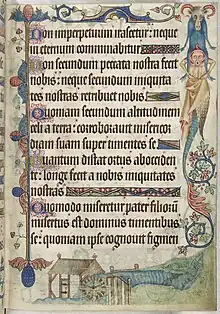 Non inperpetuum irascetur: neque
in eternum comminabitur
Non secundum peccata nostra fecit
nobis: neque secundum iniquita
tes nostras retribuit nobis.
Quoniam secundum altitudinem
celi a terra: corroboravit misericor
diam suam super timentes se.
Quantum distat ortus ab occiden
te: longe fecit a nobis iniquitates
nostras
Quomodo miseretur pater filiorum
misertus est dominus timentibus
se: quoniam ipse cognovit figmen